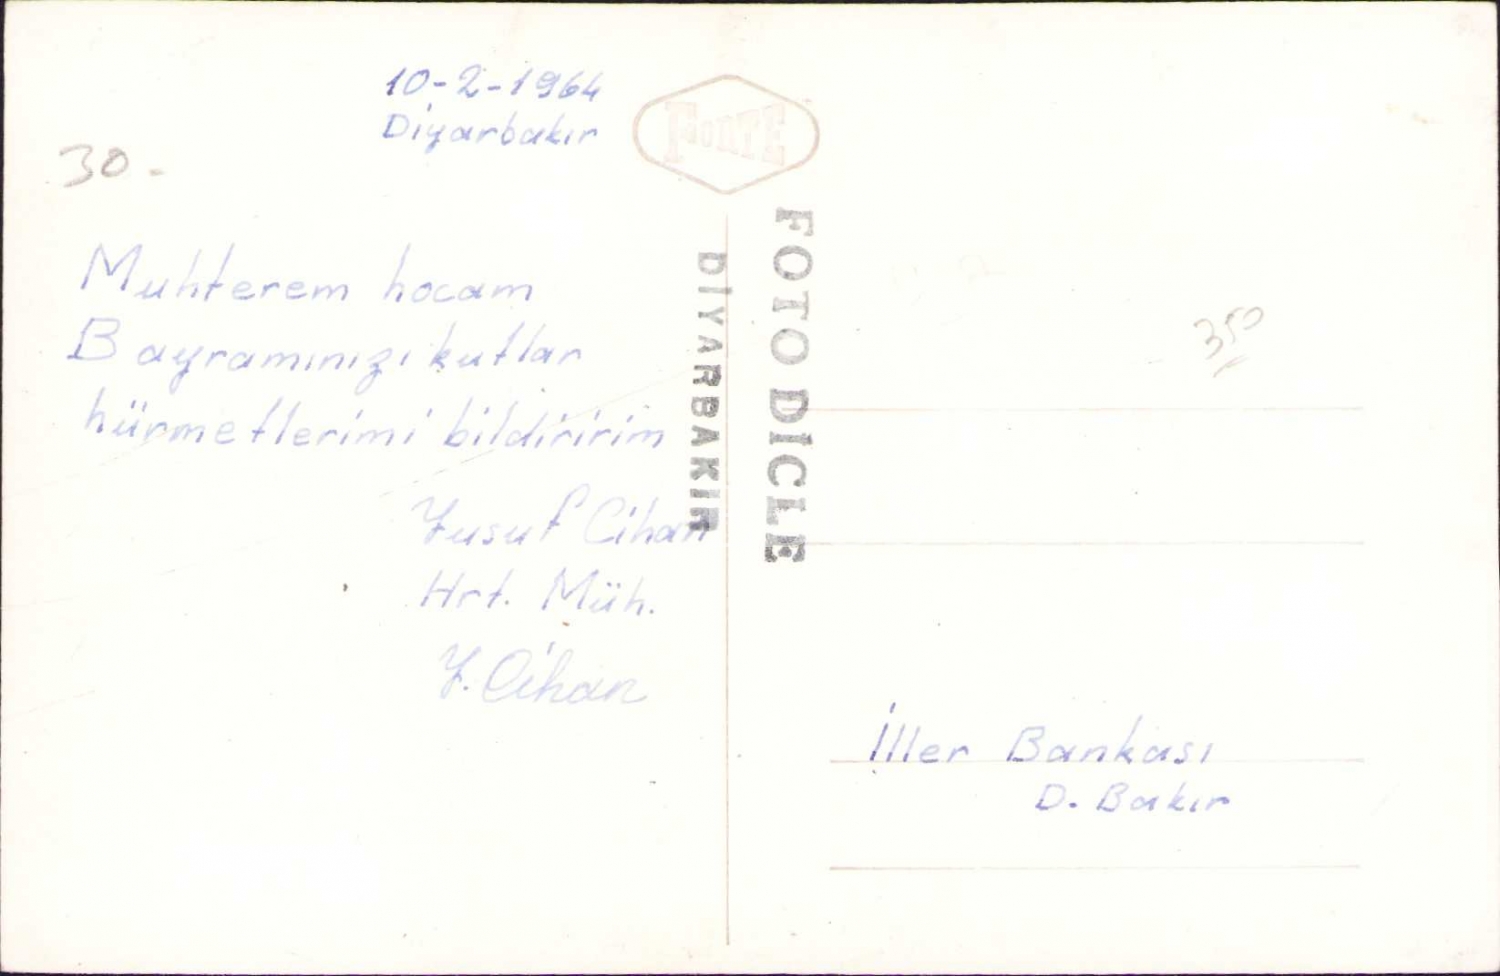 10-2-1964
Diyarbakır
30.-
Muhterem hocam
Bayramınızı kutlar
hürmetlerimi bildiririm
Yusuf Cihan
Hrt. Müh.
Y. Cihan
FONTE
FOTO DICLE
DİYARBAKIR
350
İller Bankası
D. Bakır